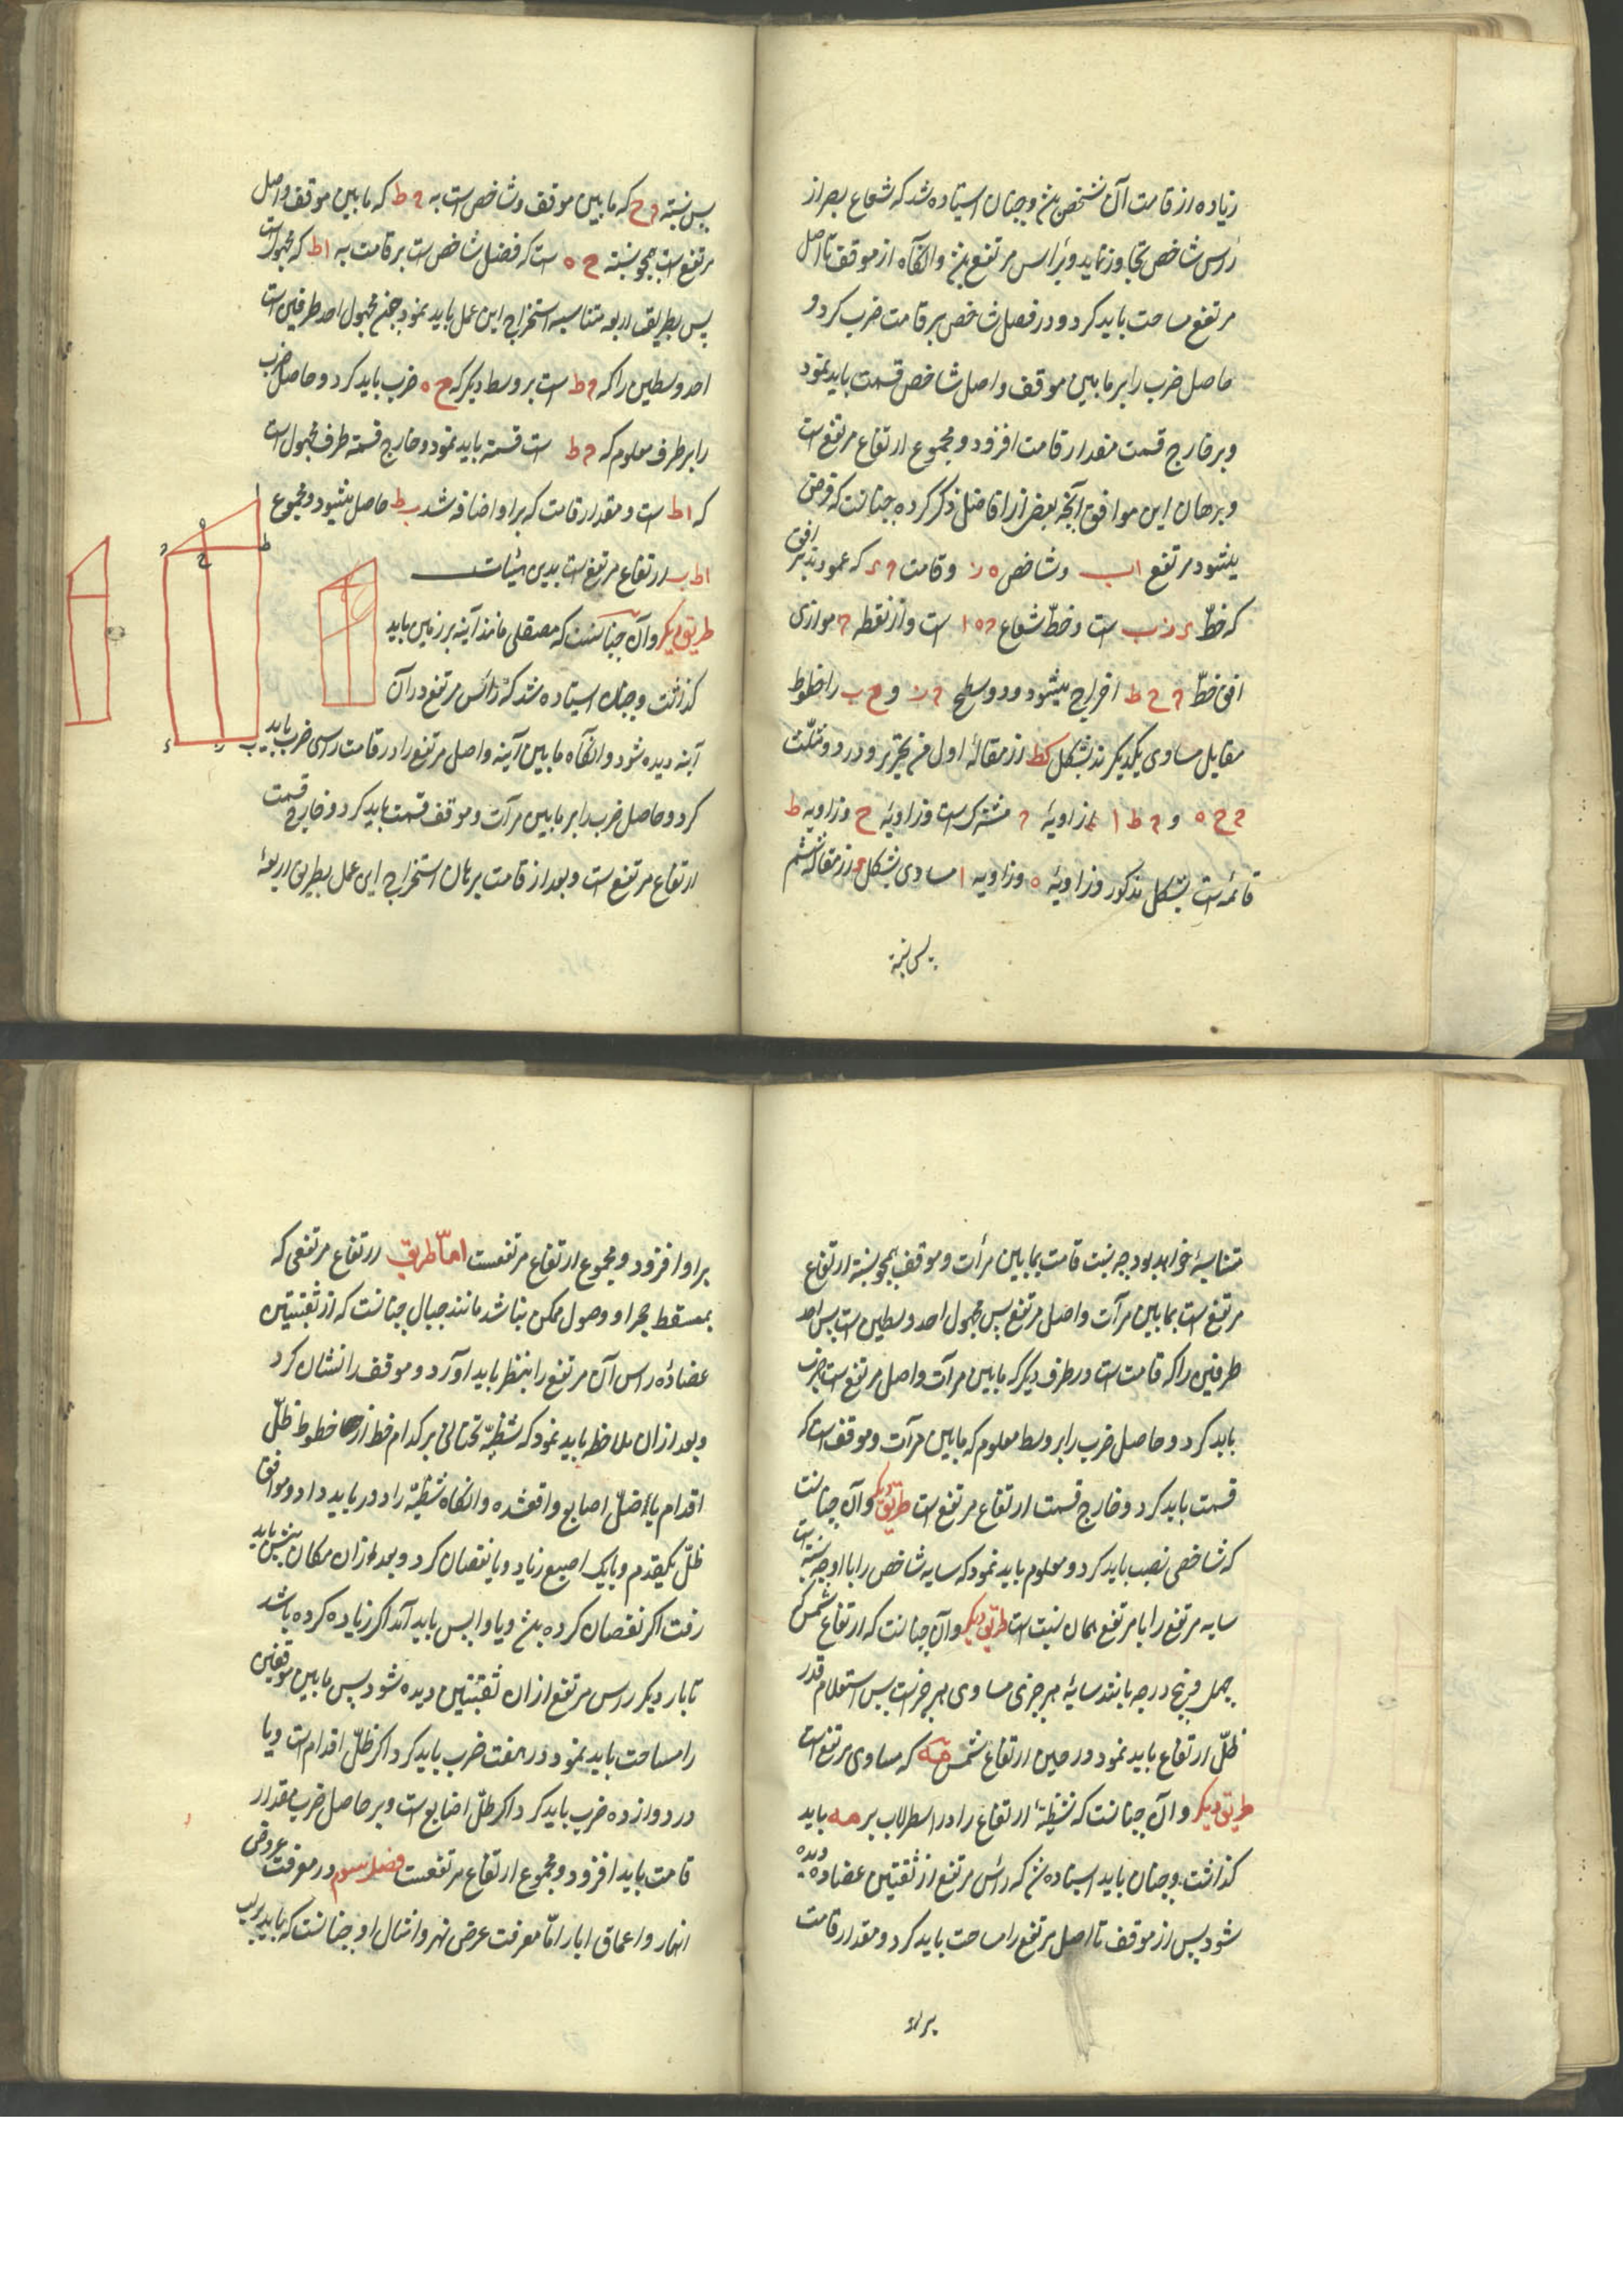 زیاده از قامت آن شخص بود و چنان ایستاده شد که شعاع بصر از
رأس شاخص تجاوز نماید و برأس مرتفع بود و آنگاه از موقف تا اصل
مرتفع مساحت باید کرد و در فصل شاخص بر قامت ضرب کرد و
حاصل ضرب را بر ما بین موقف و اصل شاخص قسمت باید نمود
و بر خارج قسمت مقدار قامت افزود و مجموع ارتفاع مرتفع است
و برهان این موافق آنچه بعضی از افاضل ذکر کرده چنانست که فرض
میشود مرتفع اب و شاخص ه ز و قامت ح ء که عمودند بر افق
که خطّ ء ز ب است و خطّ شعاع ح ه ا است و از نقطه ح موازی
افق خطّ ح ح ط اخراج میشود و دو سطح ح ز و ح ب را خطوط
مقابل مساوی یکدیگرند بشکل کط از مقالهٔ اول فن تحریر و در دو مثلّث
ح ح ه و ح ط ا زاویهٔ ح مشترک است و زاویهٔ ح و زاویه ط
قائمه است بشکل مذکور و زاویهٔ ه و زاویه ا مساوی بشکل از مقاله ششم
پس نسبة
پس نسبة ح ح که ما بین موقف و شاخص است به ح ط که ما بین موقف و اصل
مرتفع است همچو نسبة ح ه است که فضل شاخص است بر قامت به اط که مجهول است
پس بطریق اربعه متناسبه استخراج این عمل باید نمود چون مجهول احد طرفین است
احد وسطین را که ح ط است بر وسط دیگر که ح ه ضرب باید کرد و حاصل ضرب
را بر طرف معلوم که ح ط است قسمة باید نمود و خارج قسمة طرف مجهول است
که اط است و مقدار قامت که بر او اضافه شد ب ط حاصل میشود و مجموع
اط ب ارتفاع مرتفع است بدین هیئات
طریق دیگر و آن چنانست که مصقلی مانند آینه بر زمین باید
گذاشت و چنان ایستاده شد که رأس مرتفع در آن
آینه دیده شود و آنگاه ما بین آینه و اصل مرتفع را در قامت رسی ضرب باید
کرد و حاصل ضرب را بر ما بین مرآت و موقف قسمت باید کرد و خارج قسمت
ارتفاع مرتفع است و بعد از قامت برهان استخراج این عمل بطریق اربعهٔ
ا
ه
ح
ح
ط
ء
ز
ب
متناسبهٔ خواهد بود چه نسبت قامت بما بین مرآت و موقف همچو نسبة ارتفاع
مرتفع است بما بین مرآت و اصل مرتفع پس مجهول احد وسطین است پس احد
طرفین را که قامت است در طرف دیگر که ما بین مرآت و اصل مرتفع است ضرب
باید کرد و حاصل ضرب را بر وسط معلوم که ما بین مرآت و موقف است که
قسمت باید کرد و خارج قسمت ارتفاع مرتفع است طریق دیگر و آن چنانست
که شاخصی نصب باید کرد و معلوم باید نمود که سایه شاخص را با او چه نسبة است
سایه مرتفع را با مرتفع همان نسبت است طریق دیگر و آن چنانست که ارتفاع شمس که
چهل و پنج درجه باشد سایهٔ هر چیزی مساوی هر چیز است پس استعلام قدر
ظلّ ارتفاع باید نمود در حین ارتفاع شمس مه که مساوی مرتفع است
طریق دیگر و آن چنانست که شظیّهٔ ارتفاع را در اسطرلاب بر مه باید
گذاشت و چنان باید ایستاده شد که رأس مرتفع از ثقبتین عضاده دیده
شود پس از موقف تا اصل مرتفع را مساحت باید کرد و مقدار قامت
بر او
بر او افزود و مجموع ارتفاع مرتفعست امّا طریق ارتفاع مرتفعی که
بمسقط حجر او وصول ممکن نباشد مانند جبال چنانست که از ثقبتین
عضاده رأس آن مرتفع را بنظر باید آورد و موقف را نشان کرد
و بعد از آن ملاحظه باید نمود که شظیّهٔ تحتانی بر کدام خط از خطوط ظلّ
اقدام یا ظلّ اصابع واقعشده و آنگاه شظیّه را دور باید داد و موافق
ظلّ یکقدم و یا یک اصبع زیاد و یا نقصان کرد و بعد از آن مکان پیش باید
رفت اگر نقصان کرده شد و یا واپس باید آمد اگر زیاده کرده باشد
تا بار دیگر رأس مرتفع از آن ثقبتین دیده شود پس ما بین موقفین
را مساحت باید نمود و در هفت ضرب باید کرد اگر ظلّ اقدام است و یا
در دوازده ضرب باید کرد اگر ظلّ اصابع است و بر حاصل ضرب مقدار
قامت باید افزود و مجموع ارتفاع مرتفعست فصل سوم در معرفت عروض
انهار و اعماق ابار امّا معرفت عرض نهر و امثال او چنانست که باید بر لب